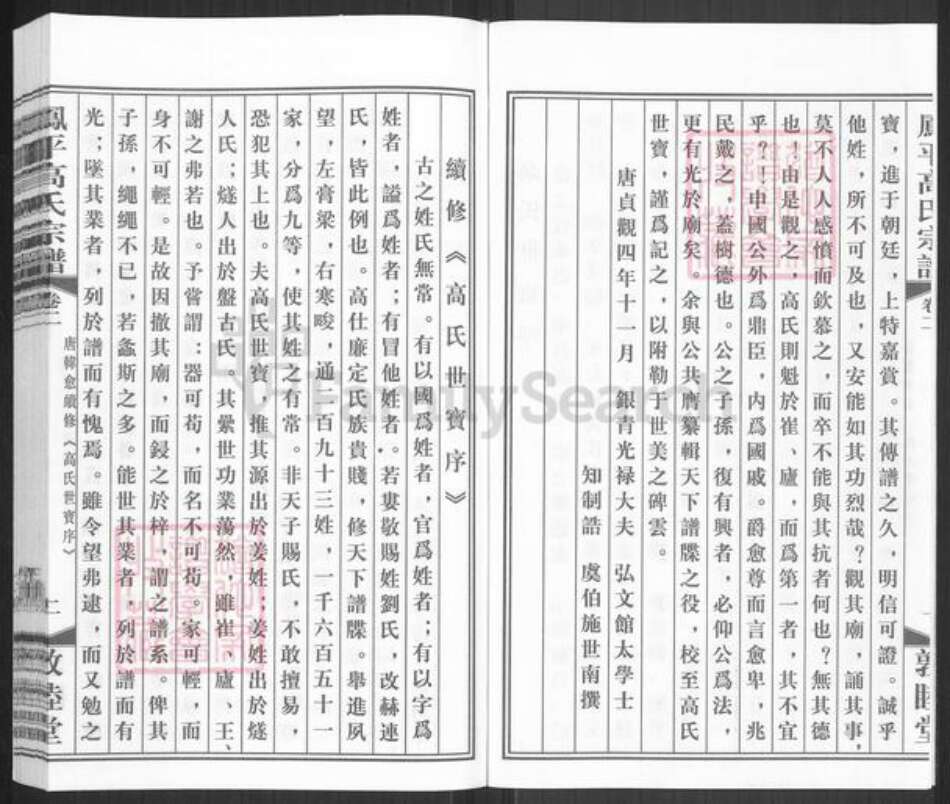 鳳平高氏宗譜
卷二
敦睦堂
寶，進于朝廷，上特嘉賞。其傳譜之久，明信可證。誠乎
他姓，所不可及也，又安能如其功烈哉？觀其廟，誦其事，
莫不人人感憤而欽慕之，而卒不能與其抗者何也？無其德
也，由是觀之，高氏則魁於崔、廬，而爲第一者，其不宜
乎？！申國公外爲鼎臣，内爲國戚。爵愈尊而言愈卑，兆
民戴之，蓋樹德也。公之子孫，復有興者，必仰公爲法，
更有光於廟矣。余與公共膺纂輯天下譜牒之役，校至高氏
世寶，謹爲記之，以附勒于世美之碑雲。
唐貞觀四年十一月　銀青光禄大夫　弘文館太學士
知制誥　虞伯施世南撰
續修《高氏世寶序》
古之姓氏無常。有以國爲姓者，官爲姓者；有以字爲
姓者，謚爲姓者；有冒他姓者。若婁敬賜姓劉氏，改赫連
氏，皆此例也。高仕廉定氏族貴賤，修天下譜牒。舉進夙
望，左膏粱，右寒畯，通二百九十三姓，一千六百五十一
家，分爲九等，使其姓之有常。非天子賜氏，不敢擅易，
恐犯其上也。夫高氏世寶，推其源出於姜姓；姜姓出於燧
人氏；燧人出於盤古氏。其纍世功業蕩然，雖崔、廬、王、
謝之弗若也。予嘗謂：器可苟，而名不可苟。家可輕，而
身不可輕。是故因撤其廟，而鋟之於梓，謂之譜系。俾其
子孫，繩繩不已，若螽斯之多。能世其業者，列於譜而有
光；墜其業者，列於譜而有愧焉。雖令望弗逮，而又勉之
鳳平高氏宗譜
卷二
唐韓愈續修《高氏世寶序》
二
敦睦堂
FamilySearch